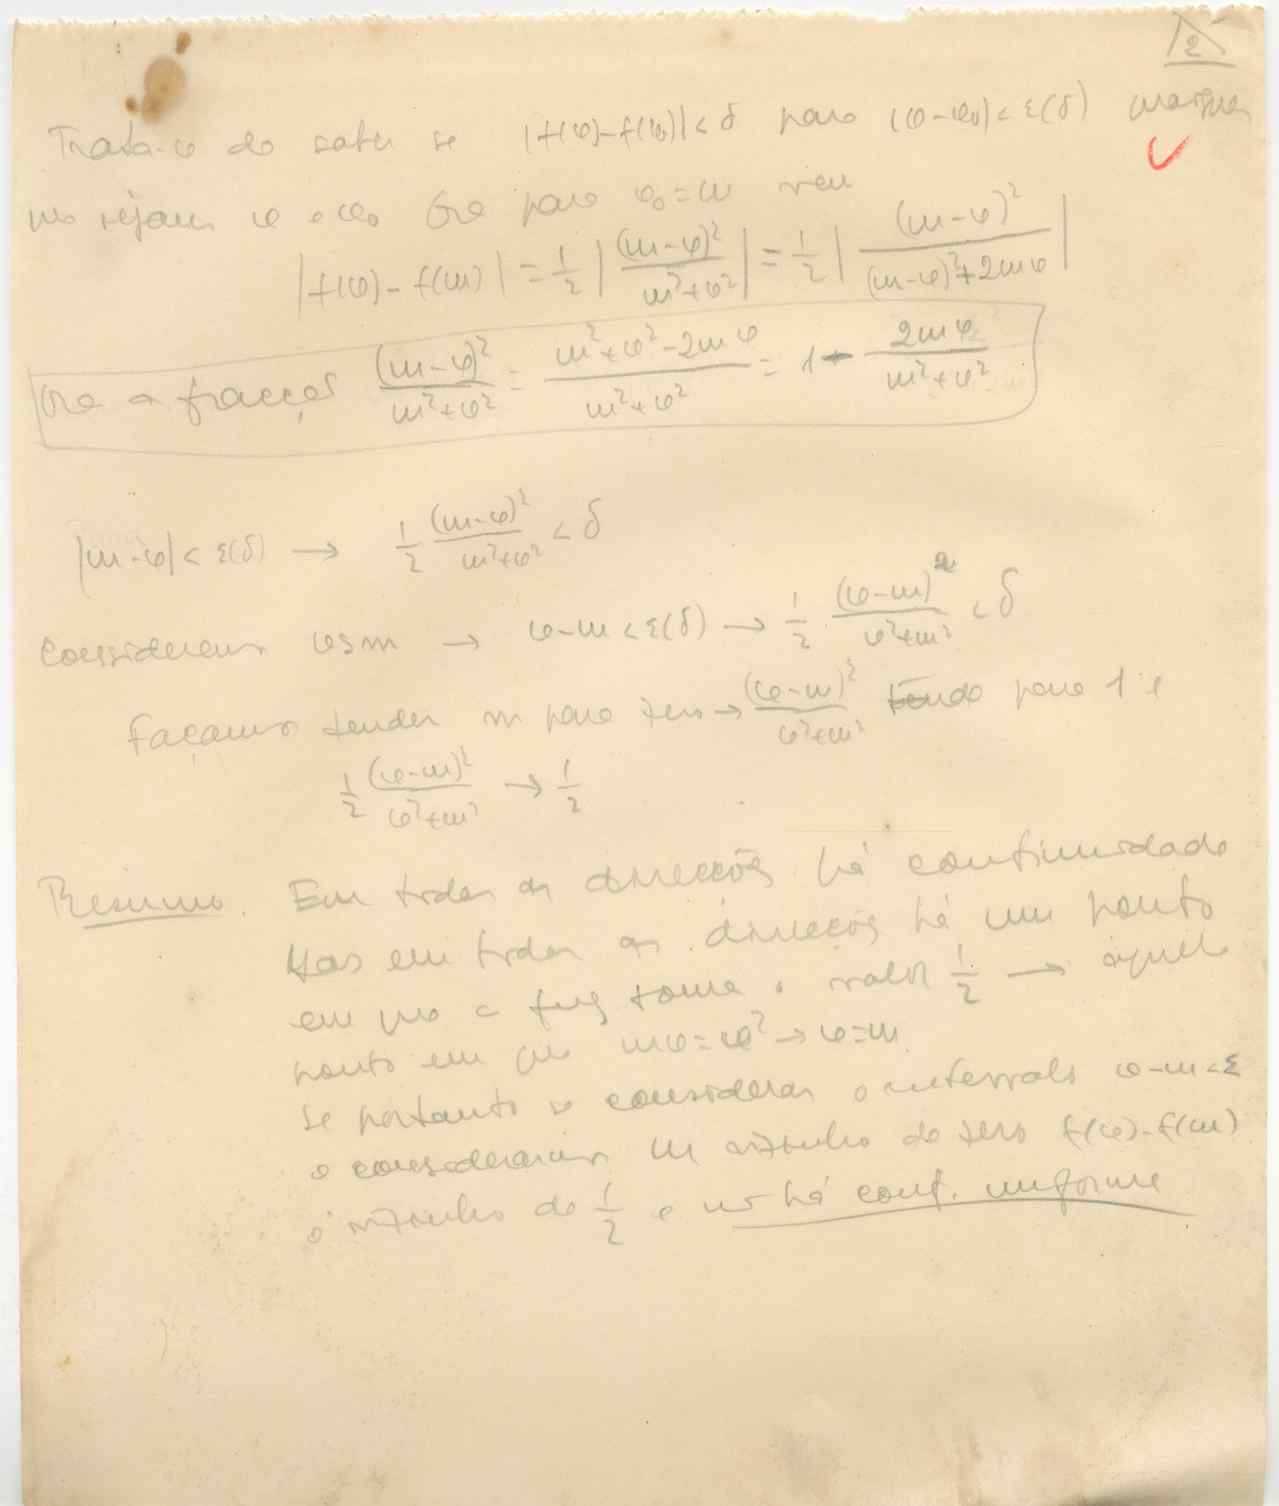 2
Trata-se de saber se |f(φ)-f(φ₀)|<δ para |φ-φ₀|<ε(δ) quaisquer
que sejam φ e φ₀ Ora para φ₀=m vem
|f(φ)-f(m)| = 1/2 |(m-φ)²/(m²+φ²)| = 1/2 |(m-φ)²/((m-φ)²+2mφ)|
Ora a fracção (m-φ)²/(m²+φ²) = (m²+φ²-2mφ)/(m²+φ²) = 1 - 2mφ/(m²+φ²)
|m-φ|<ε(δ) → 1/2 (m-φ)²/(m²+φ²) < δ
Consideremos φ>m → φ-m<ε(δ) → 1/2 (φ-m)²/(φ²+m²) < δ
Façamos tender m para zero → (φ-m)²/(φ²+m²) tende para 1 e
1/2 (φ-m)²/(φ²+m²) → 1/2
Resumo. Em todas as direcções há continuidade
Mas em todas as direcções há um ponto
em que a função toma o valor 1/2 → aquele
ponto em que mφ=φ² → φ=m
Se portanto se considerar o intervalo φ-m<ε
e considerarmos m vizinho de zero f(φ)-f(m)
é vizinho de 1/2 e não há conf. uniforme